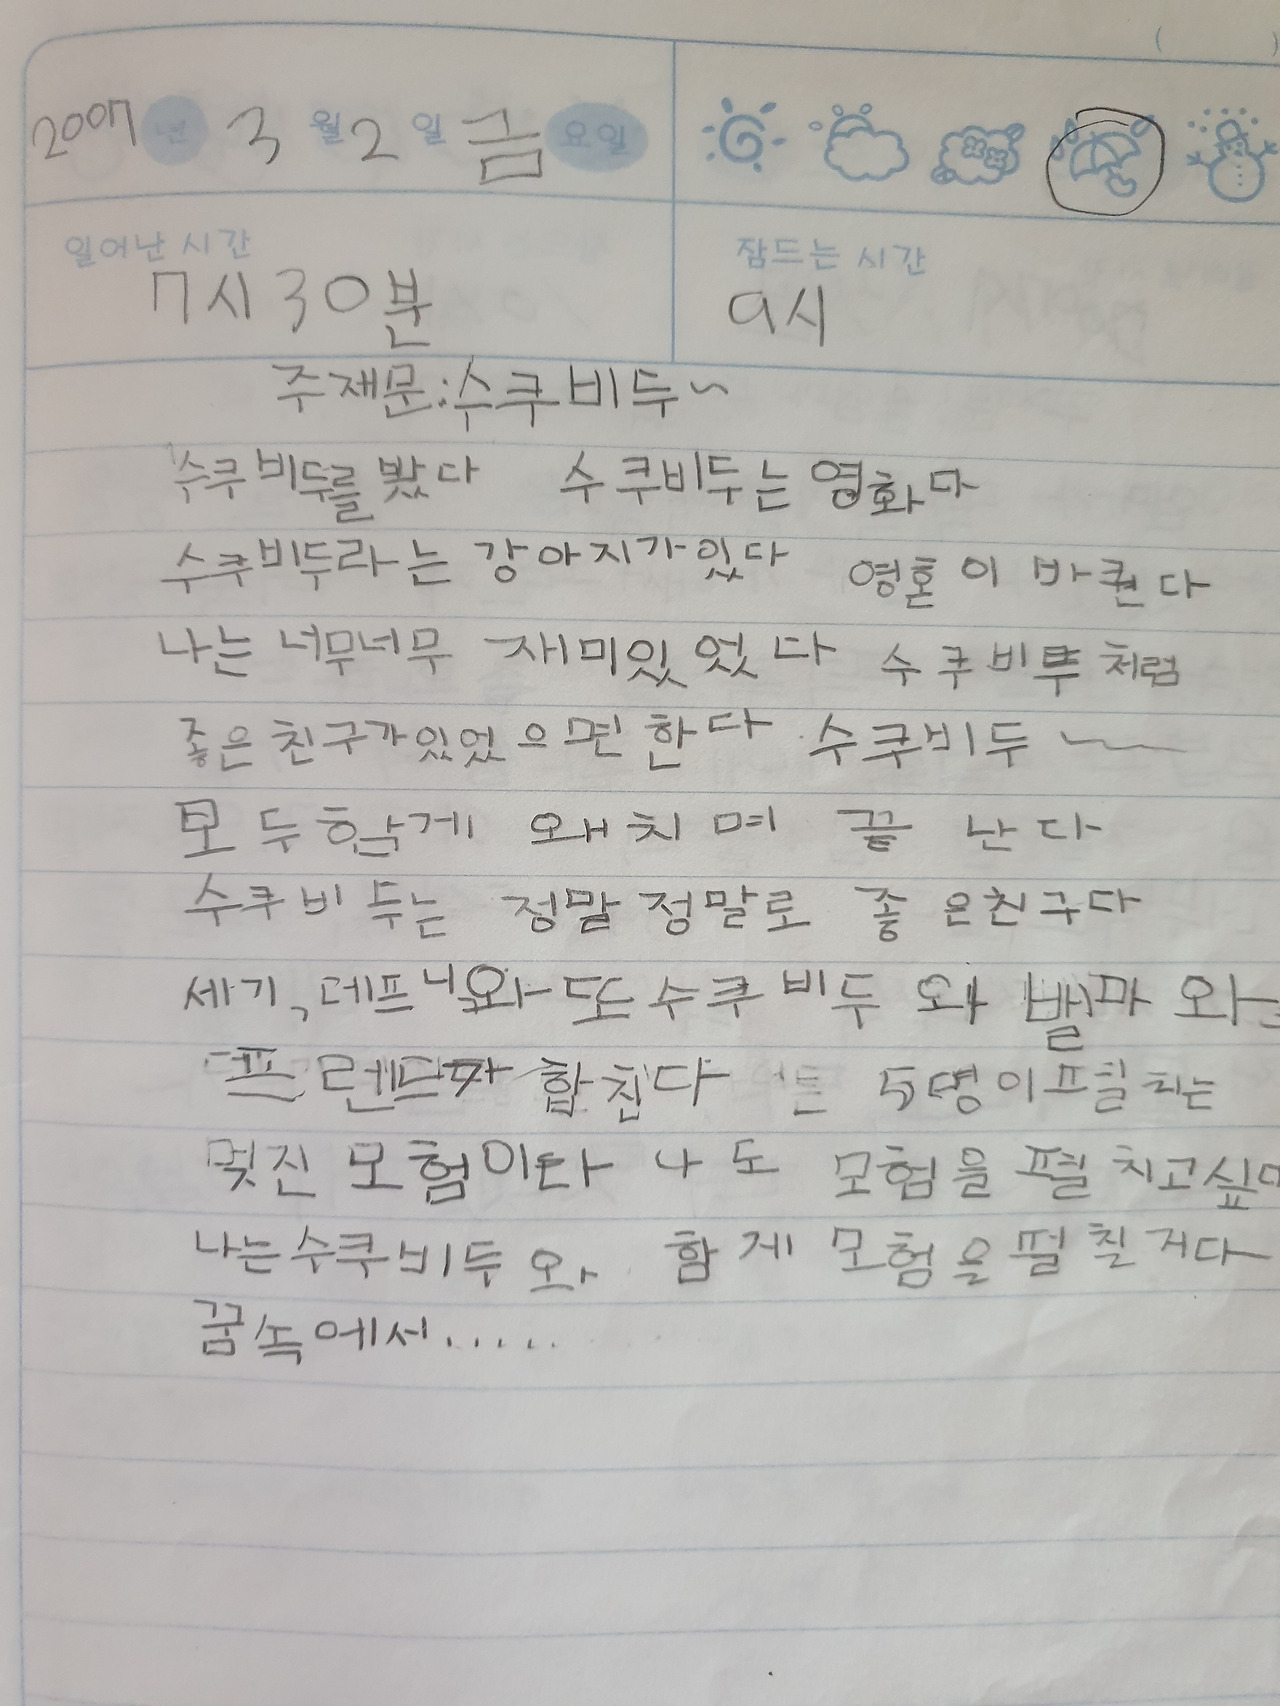 2007년 3월 2일 금요일
일어난 시간
7시 30분
잠드는 시간
9시
주재문:수쿠비두~
수쿠비두를 봤다 수쿠비두는 영화다
수쿠비두라는 강아지가있다 영혼이 바뀐다
나는 너무너무 재미있었다 수쿠비두처럼
좋은 친구가있었으면 한다 수쿠비두~
모두함게 왜치며 끝난다
수쿠비두는 정말정말로 좋은친구다
세기, 데프니와 또 수쿠비두와 밸마와
합친다 5명이프칠치는
멋진 모험이다 나도 모험을 펼치고싶
나는수쿠비두와 함게 모험을 펼칠거다
꿈속에서.....